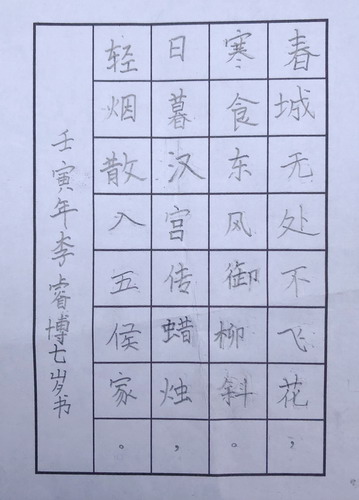 春城无处不飞花，
寒食东风御柳斜。
日暮汉宫传蜡烛，
轻烟散入五侯家。
壬寅年李睿博七岁书